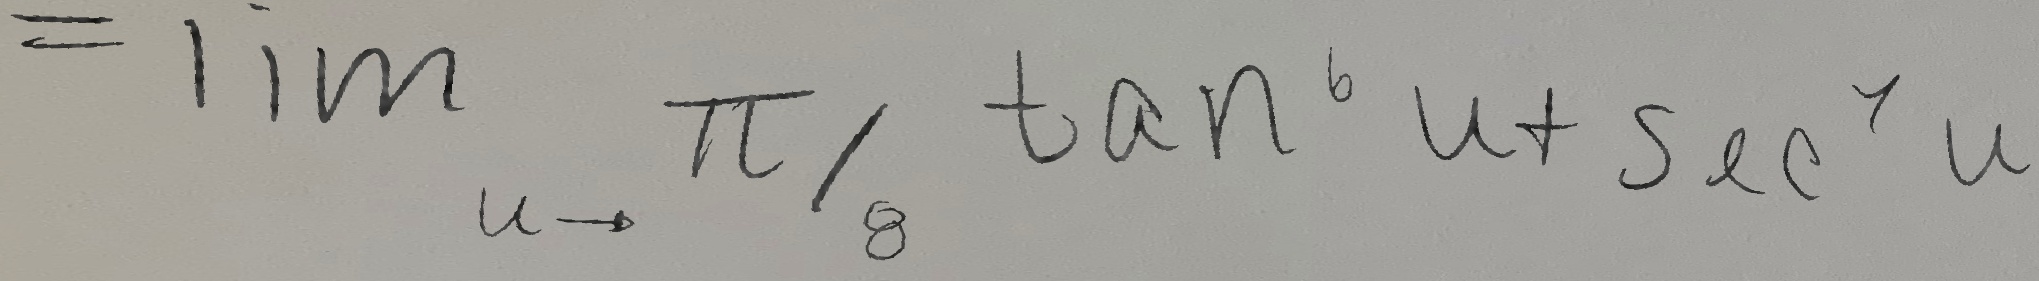 = lim u→π/8 tan⁶ u + sec⁴ u